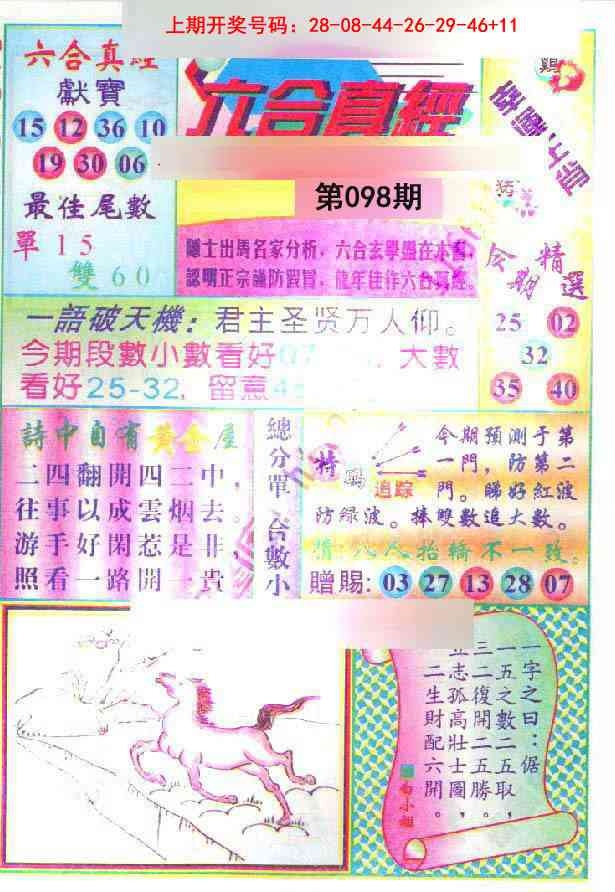 上期开奖号码：28-08-44-26-29-46+11
六合真經
獻寶
15 12 36 10
19 30 06
最佳尾數
單15
雙60
六合真經
第098期
隱士出馬名家分析，六合玄學盡在本書，
認明正宗謹防假冒，龍年佳作六合真經。
鷄
猪
今期精選
25 02
32
35 40
一語破天機：君主圣贤万人仰。
今期段數小數看好07 ，大數
看好25-32，留意4
詩中自有黃金屋
二四翻開四二中，
往事以成雲烟去。
游手好閑惹是非，
照看一路開一貴
總分單
合數小
特碼
追踪
今期預測于第
一門，防第二
門。睇好紅波
防绿波。捧雙數追大數。
猜:八人抬轎不一致。
贈賜: 03 27 13 28 07
一字之曰：倨
一五之數二五取，
三二復開二五勝。
立志孤高壯士圖，
二二生財配六開。
白小姐